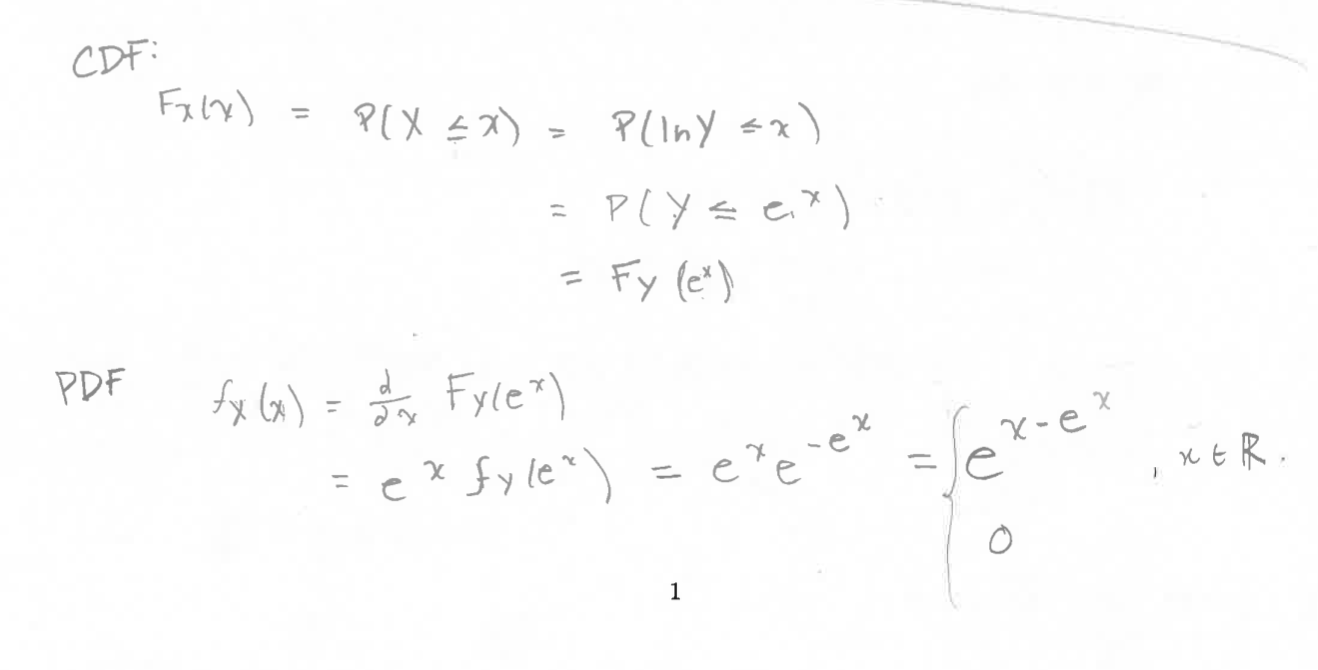 CDF:
F_X(x) = P(X ≤ x) = P(ln Y ≤ x)
= P(Y ≤ e^x)
= F_Y(e^x)
PDF f_X(x) = d/dx F_Y(e^x)
= e^x f_Y(e^x) = e^x e^{-e^x} = { e^{x-e^x} , x ∈ ℝ.
0
1